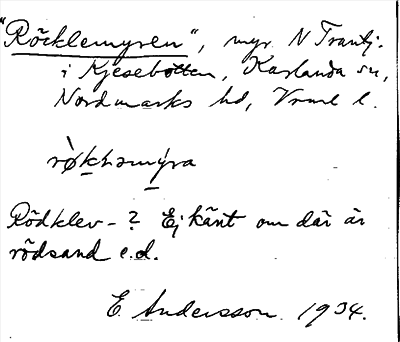 "Röcklemyren", myr N Trantj.
i Kjesebotten, Karlanda sn,
Nordmarks hd, Vrml l.
Rödklev-? Ej känt om där är
rödsand e.d.
E. Andersson 1934.